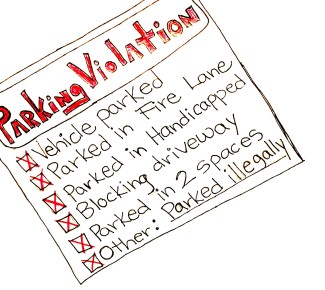 PARKING VIOLATION
Vehicle parked
Parked in Fire Lane
Parked in Handicapped
Blocking driveway
Parked in 2 spaces
Other: Parked illegally